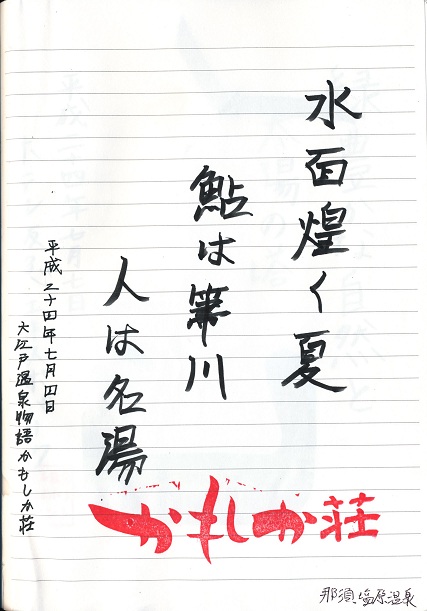 水面煌く夏
鮎は箒川
人は名湯
平成二十四年七月四日
大江戸温泉物語かもしか荘
かもしか荘
那須塩原温泉